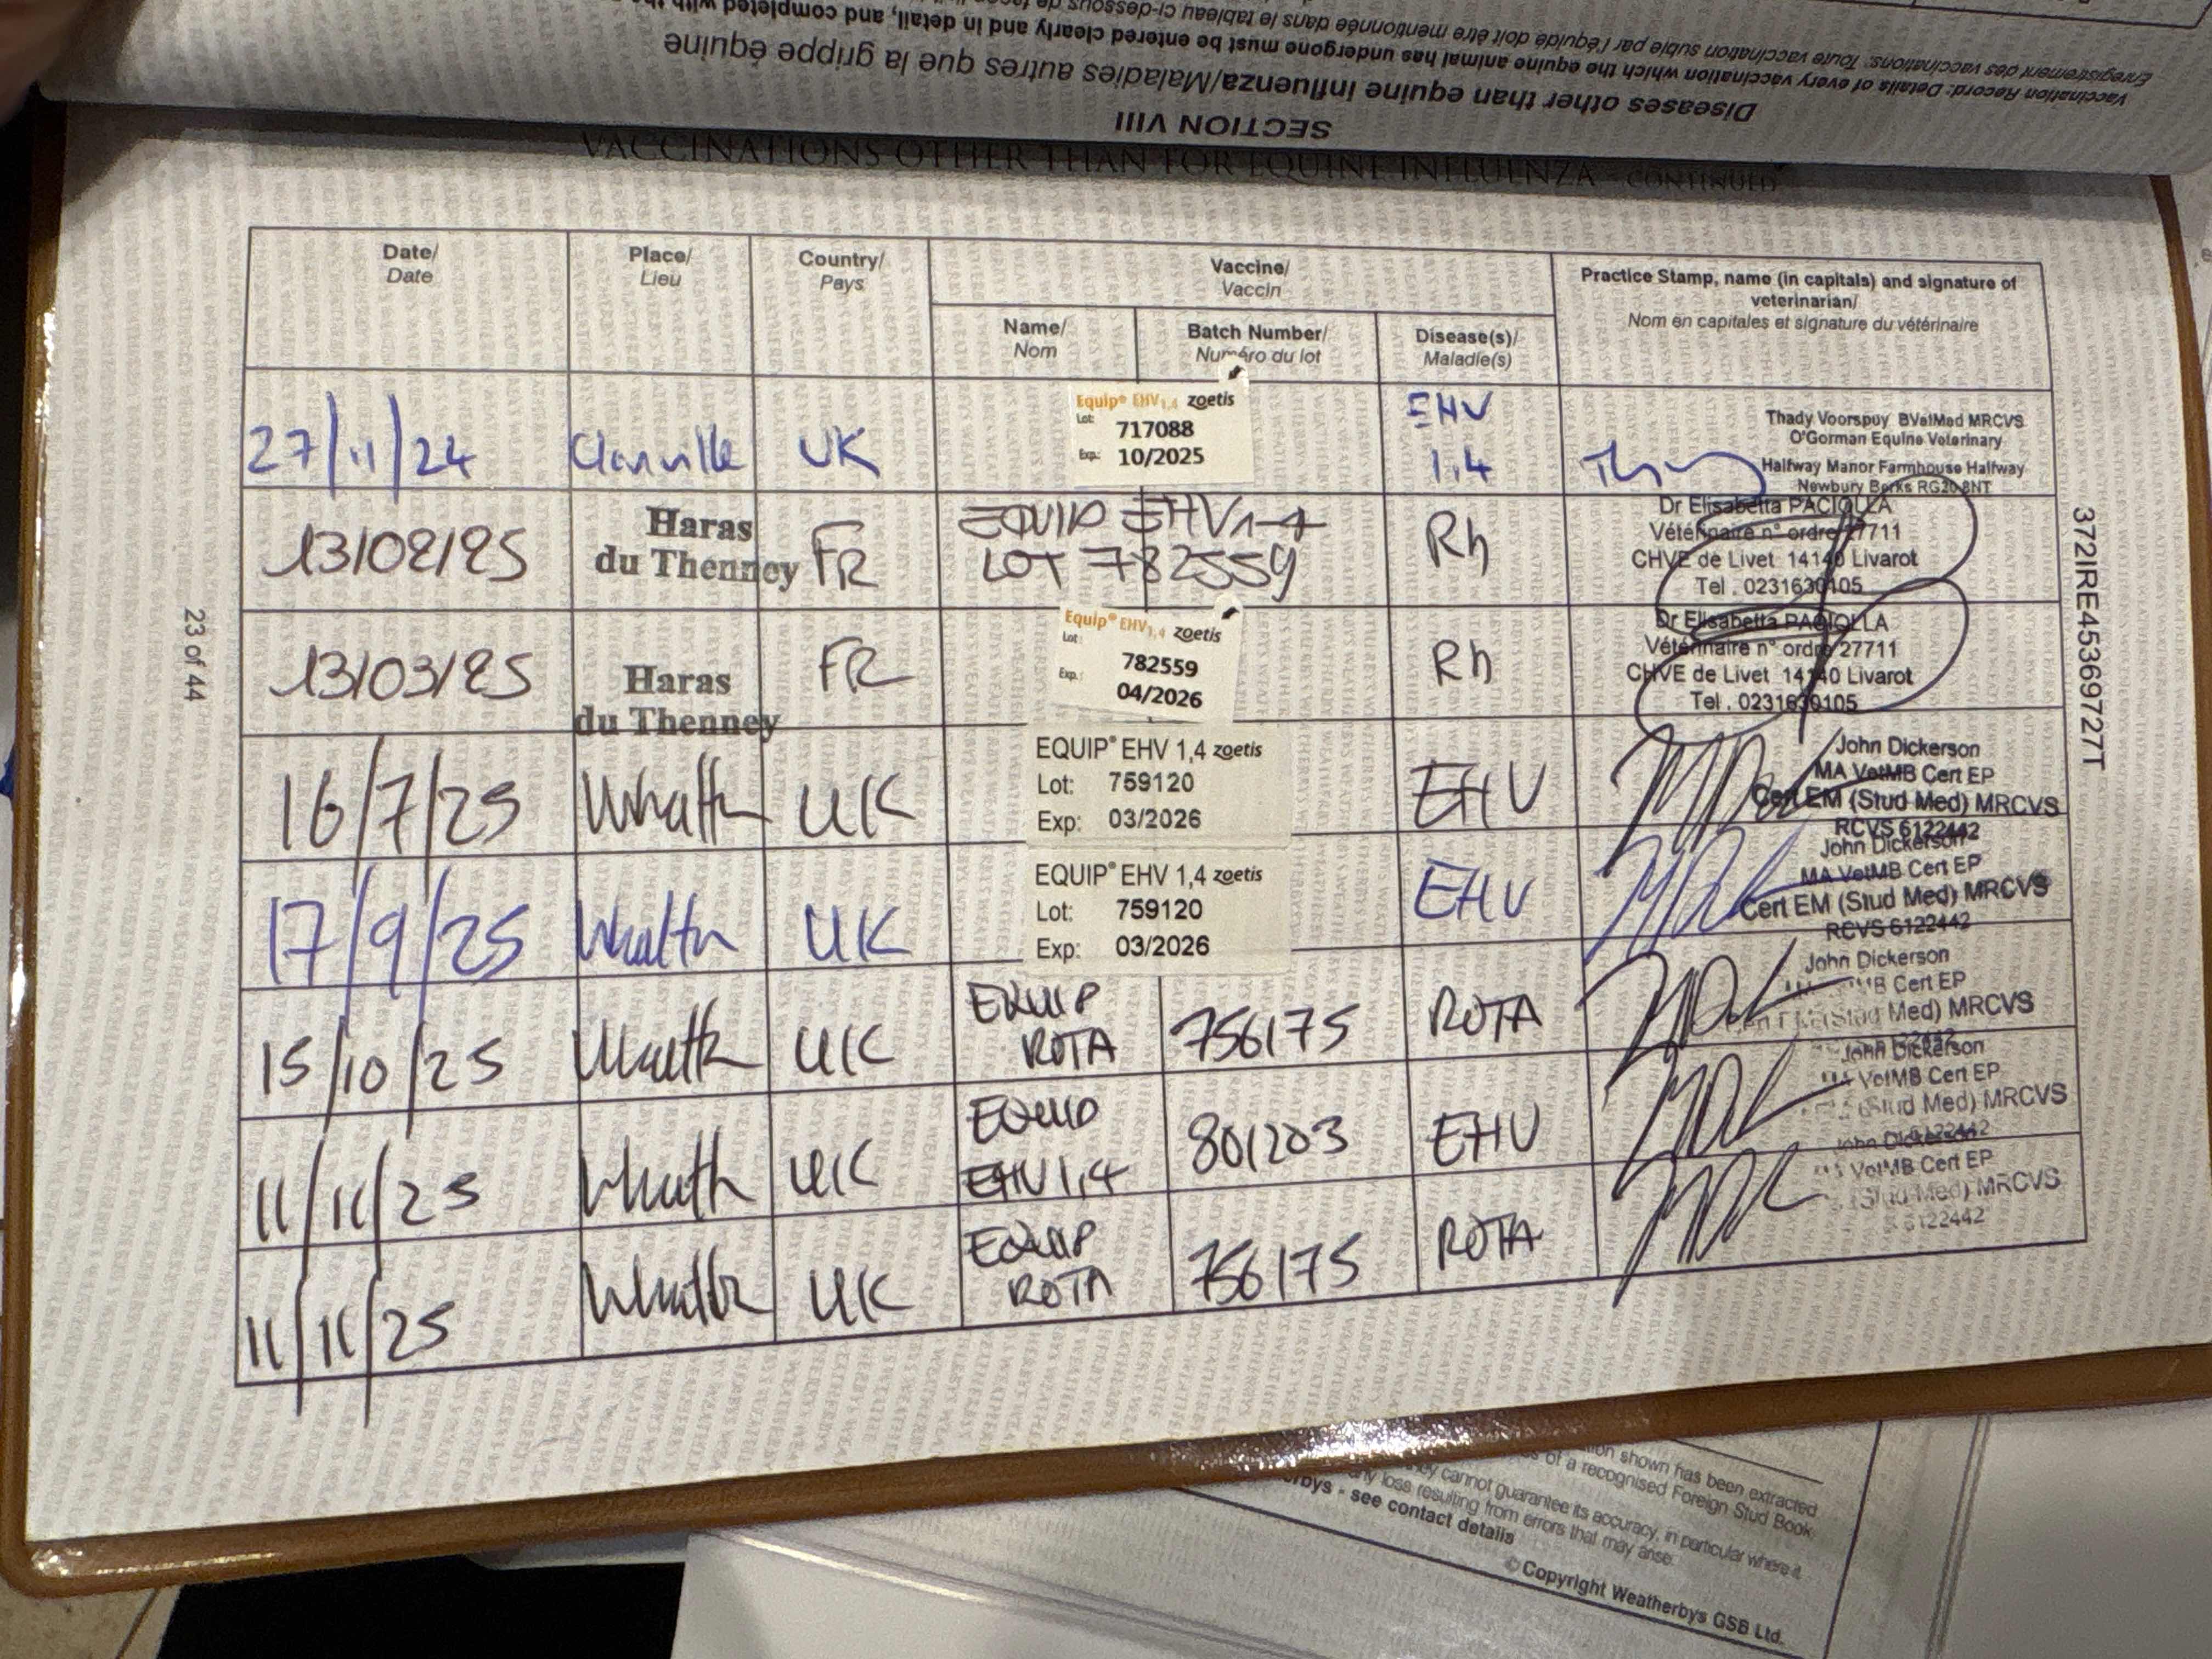 Enregistrement des vaccinations: Toute vaccination subie par l'équidé doit être mentionnée dans le tableau ci-dessous de
Vaccination Record: Details of every vaccination which the equine animal has undergone must be entered clearly and in detail, and completed with the
Diseases other than equine influenza/Maladies autres que la grippe équine
SECTION VIII
VACCINATIONS OTHER THAN FOR EQUINE INFLUENZA - CONTINUED
Date/ Place/ Country/ Vaccine/ Practice Stamp, name (in capitals) and signature of
Date Lieu Pays Vaccin veterinarian/
Nom en capitales et signature du vétérinaire
Name/ Batch Number/ Disease(s)/
Nom Numéro du lot Maladie(s)
27/11/24 UK
Equip® EHV1,4 zoetis
Lot: 717088
Exp.: 10/2025
EHV
1,4
Thady Voorspuy BVetMed MRCVS
O'Gorman Equine Veterinary
Halfway Manor Farmhouse Halfway
Newbury Berks RG20 8NT
13/02/25
Haras
du Thenney
FR
EQUIP EHV1-4
LOT 782559
Rh
Dr Elisabetta PACIOLLA
Vétérinaire n° ordre 27711
CHVE de Livet 14140 Livarot
Tel . 0231630105
13/03/25
Haras
du Thenney
FR
Equip® EHV1,4 zoetis
Lot: 782559
Exp.: 04/2026
Rh
Dr Elisabetta PACIOLLA
Vétérinaire n° ordre 27711
CHVE de Livet 14140 Livarot
Tel . 0231630105
16/7/25 UK
EQUIP® EHV 1,4 zoetis
Lot: 759120
Exp: 03/2026
EHV
John Dickerson
MA VetMB Cert EP
Cert EM (Stud Med) MRCVS
RCVS 6122442
17/9/25 UK
EQUIP® EHV 1,4 zoetis
Lot: 759120
Exp: 03/2026
EHV
John Dickerson
MA VetMB Cert EP
Cert EM (Stud Med) MRCVS
RCVS 6122442
15/10/25 UK
EQUIP
ROTA
756175
ROTA
John Dickerson
Cert EP
(Stud Med) MRCVS
11/11/25 UK
EQUIP
EHV 1,4
801203
EHV
John Dickerson
VetMB Cert EP
(Stud Med) MRCVS
6122442
11/11/25 UK
EQUIP
ROTA
756175
ROTA
John Dickerson
VetMB Cert EP
(Stud Med) MRCVS
6122442
372IRE45369727T
23 of 44
shown has been extracted
of a recognised Foreign Stud Book.
cannot guarantee its accuracy, in particular where it
any loss resulting from errors that may arise.
- see contact details
© Copyright Weatherbys GSB Ltd.